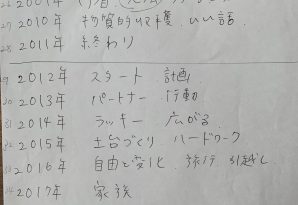 27 2010年 物質的収穫、いい話
28 2011年 終わり
29 2012年 スタート 計画
30 2013年 パートナー 行動
31 2014年 ラッキー 広がる
32 2015年 土台づくり ハードワーク
33 2016年 自由と変化、旅行、引越し
34 2017年 家族